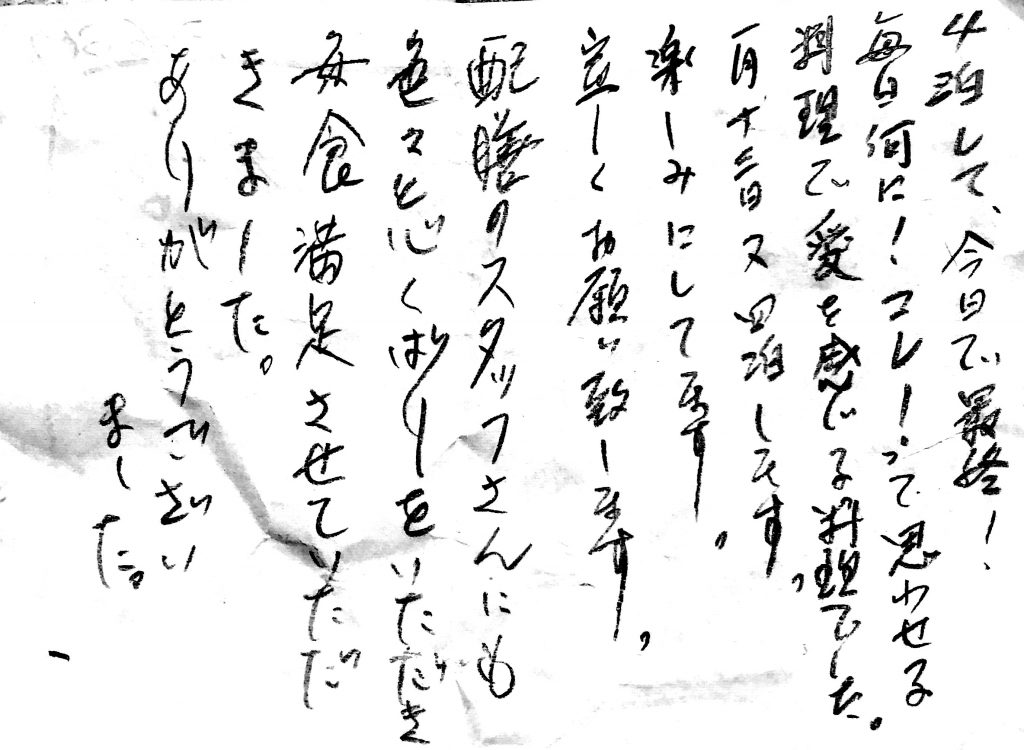 4泊して、今日で最終!
毎日何に!コレ!って思わせる
料理で愛を感じる料理でした。
一月十三日又四泊します。
楽しみにして居ます。
宜しくお願い致します。
配膳のスタッフさんにも
色々と心くばりをいただき
毎食満足させていただ
きました。
ありがとうござい
ました。